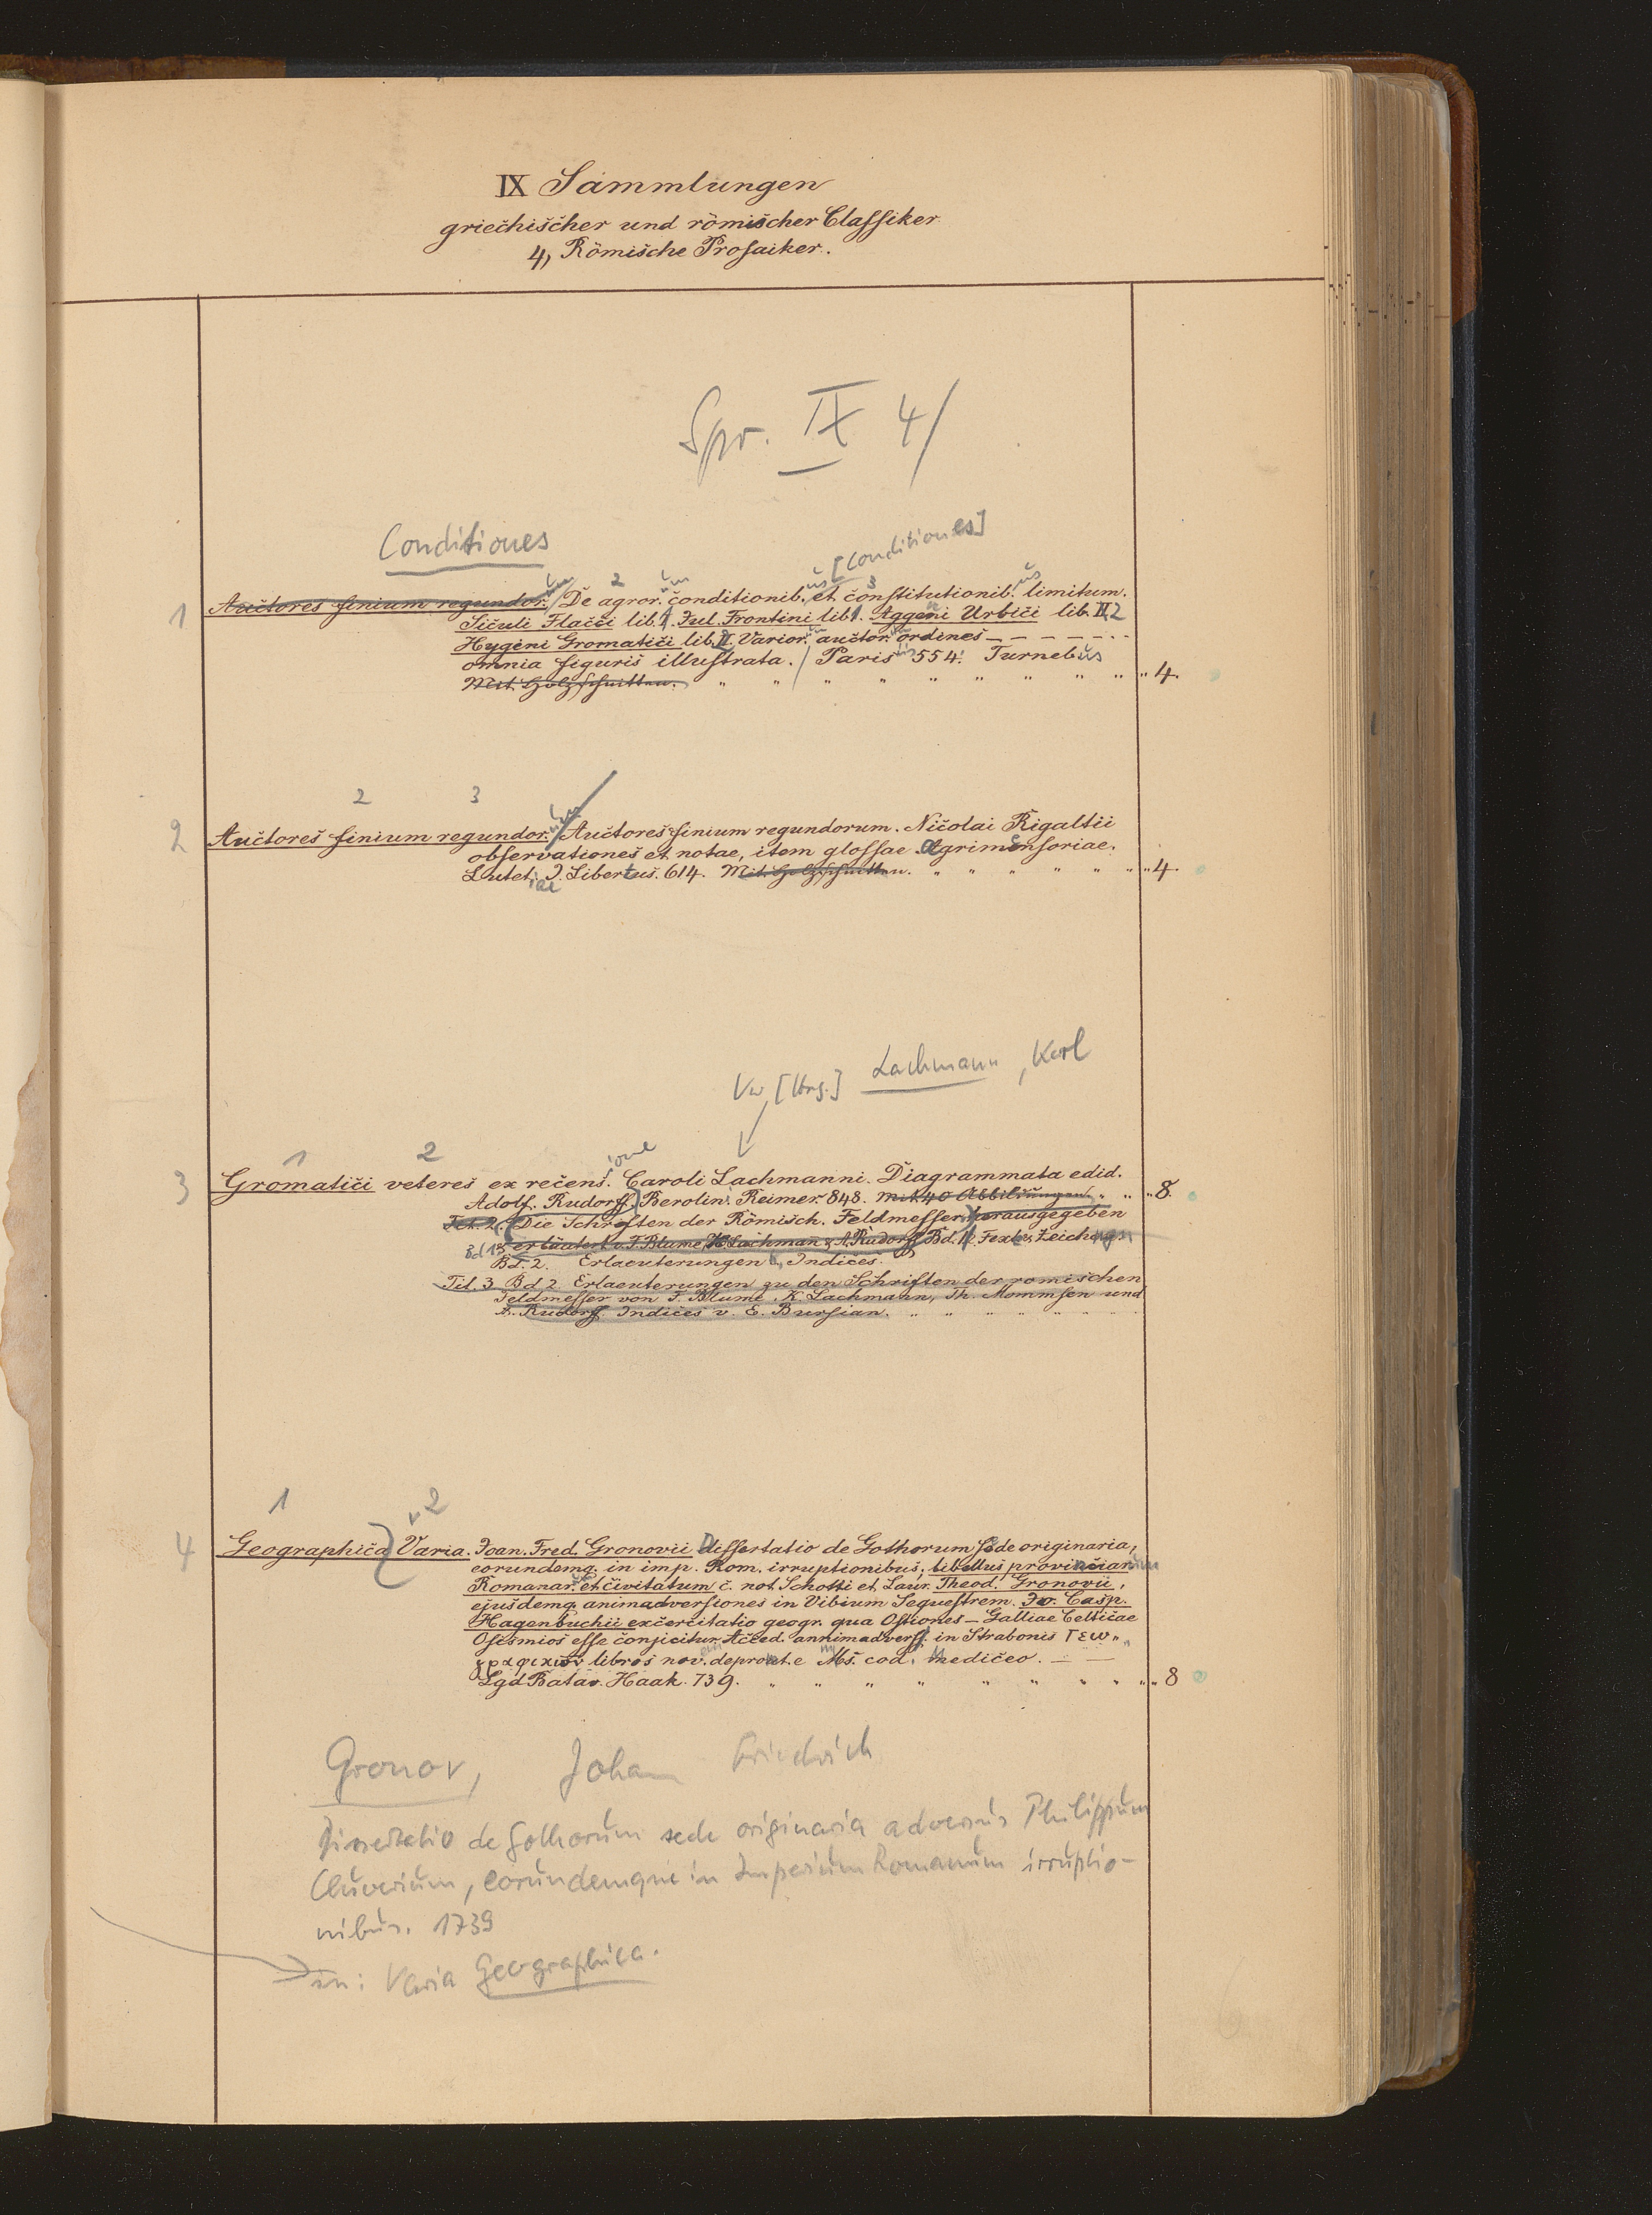 IX Sammlungen
griechischer und römischer Classiker
4, Römische Prosaiker.
Spr. IX 4/
Conditiones
[Conditiones]
2 3
1 Auctores finium regundor. De agror. conditionib. et constitutionib. limitum.
Siculi Flacci lib. 1. Jul. Frontini lib. 1. Aggeni Urbici lib. II, 2
Hygeni Gromatici lib. II. Varior. auctor. ordines
omnia figuris illustrata. / Paris 554. Turnebus
Mit Holzschnitten. 4.
2 3
2 Auctores finium regundor. / Auctores finium regundorum. Nicolai Rigaltii
observationes et notae, item glossae agrimensoriae.
Lutetiae J. Libertus. 614. Mit Holzschnitten. 4.
Vw. [Hrsg.] Lachmann, Karl
1 2 ione
3 Gromatici veteres ex recens. Caroli Lachmanni. Diagrammata edid.
Adolf. Rudorff. Berolini Reimer. 848. mit 40 Abbildungen. 8.
Tit. 2. Die Schriften der Römisch. Feldmesser herausgegeben
erläutert v. F. Blume, K. Lachman & A. Rudorff Bd. 1. Text & Zeichngn
Bd. 2. Erlaeuterungen u. Indices.
Tit. 3 Bd 2. Erlaeuterungen zu den Schriften der römischen
Feldmesser von F. Blume, K. Lachmann, Th. Mommsen und
A. Rudorff. Indices v. E. Bursian.
1 2
4 Geographica Varia. Joan. Fred. Gronovii dissertatio de Gothorum Sede originaria,
eorundemq. in imp. Rom. irruptionibus; libellus provinciar.
Romanar. et civitatum c. not. Schotti et Laur. Theod. Gronovii,
ejusdemq. animadversiones in Vibium Sequestrem. Jo. Casp.
Hagenbuchii exercitatio geogr. qua Ostiones – Galliae Celticae
Osismios esse conjicitur. Acced. annimadvers. in Strabonis Γεω„
γραφικῶν libros nov. depromt. e Ms. cod. mediceo.
Lgd Batav. Haak. 739. 8
Gronov, Johann Friedrich
Dissertatio de Gothorum sede originaria adversus Philippum
Cluverium, eorundemque in Imperium Romanum irruptio-
nibus. 1739
in: Varia Geographica.